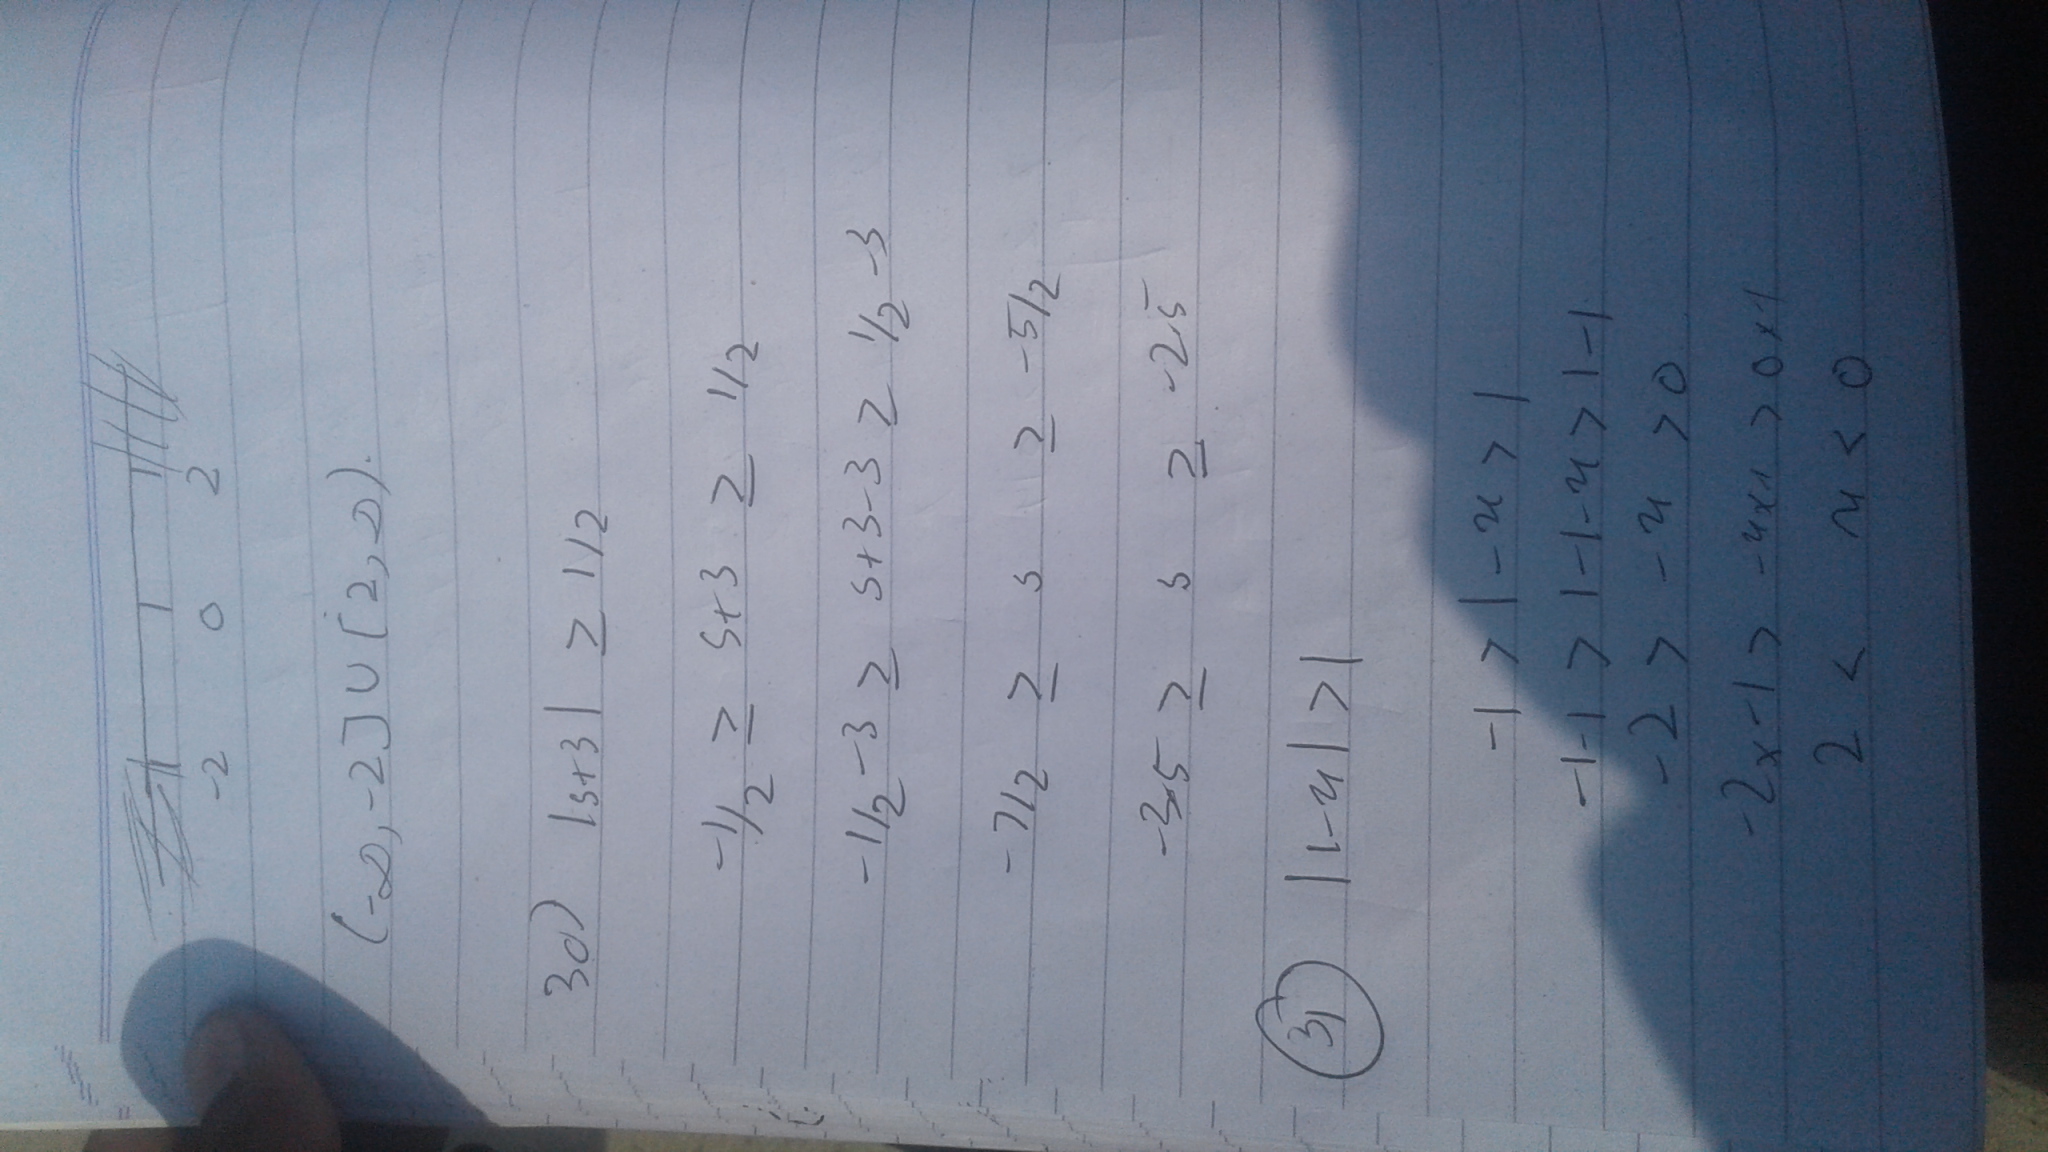 -2 0 2
(-∞, -2] ∪ [2, ∞).
30) |s+3| ≥ 1/2
-1/2 ≥ s+3 ≥ 1/2
-1/2 -3 ≥ s+3-3 ≥ 1/2 -3
-7/2 ≥ s ≥ -5/2
-3.5 ≥ s ≥ -2.5
31) |1-x| > 1
-1 > 1-x > 1
-1-1 > 1-1-x > 1-1
-2 > -x > 0
-2x-1 > -x×1 > 0×1
2 < x < 0